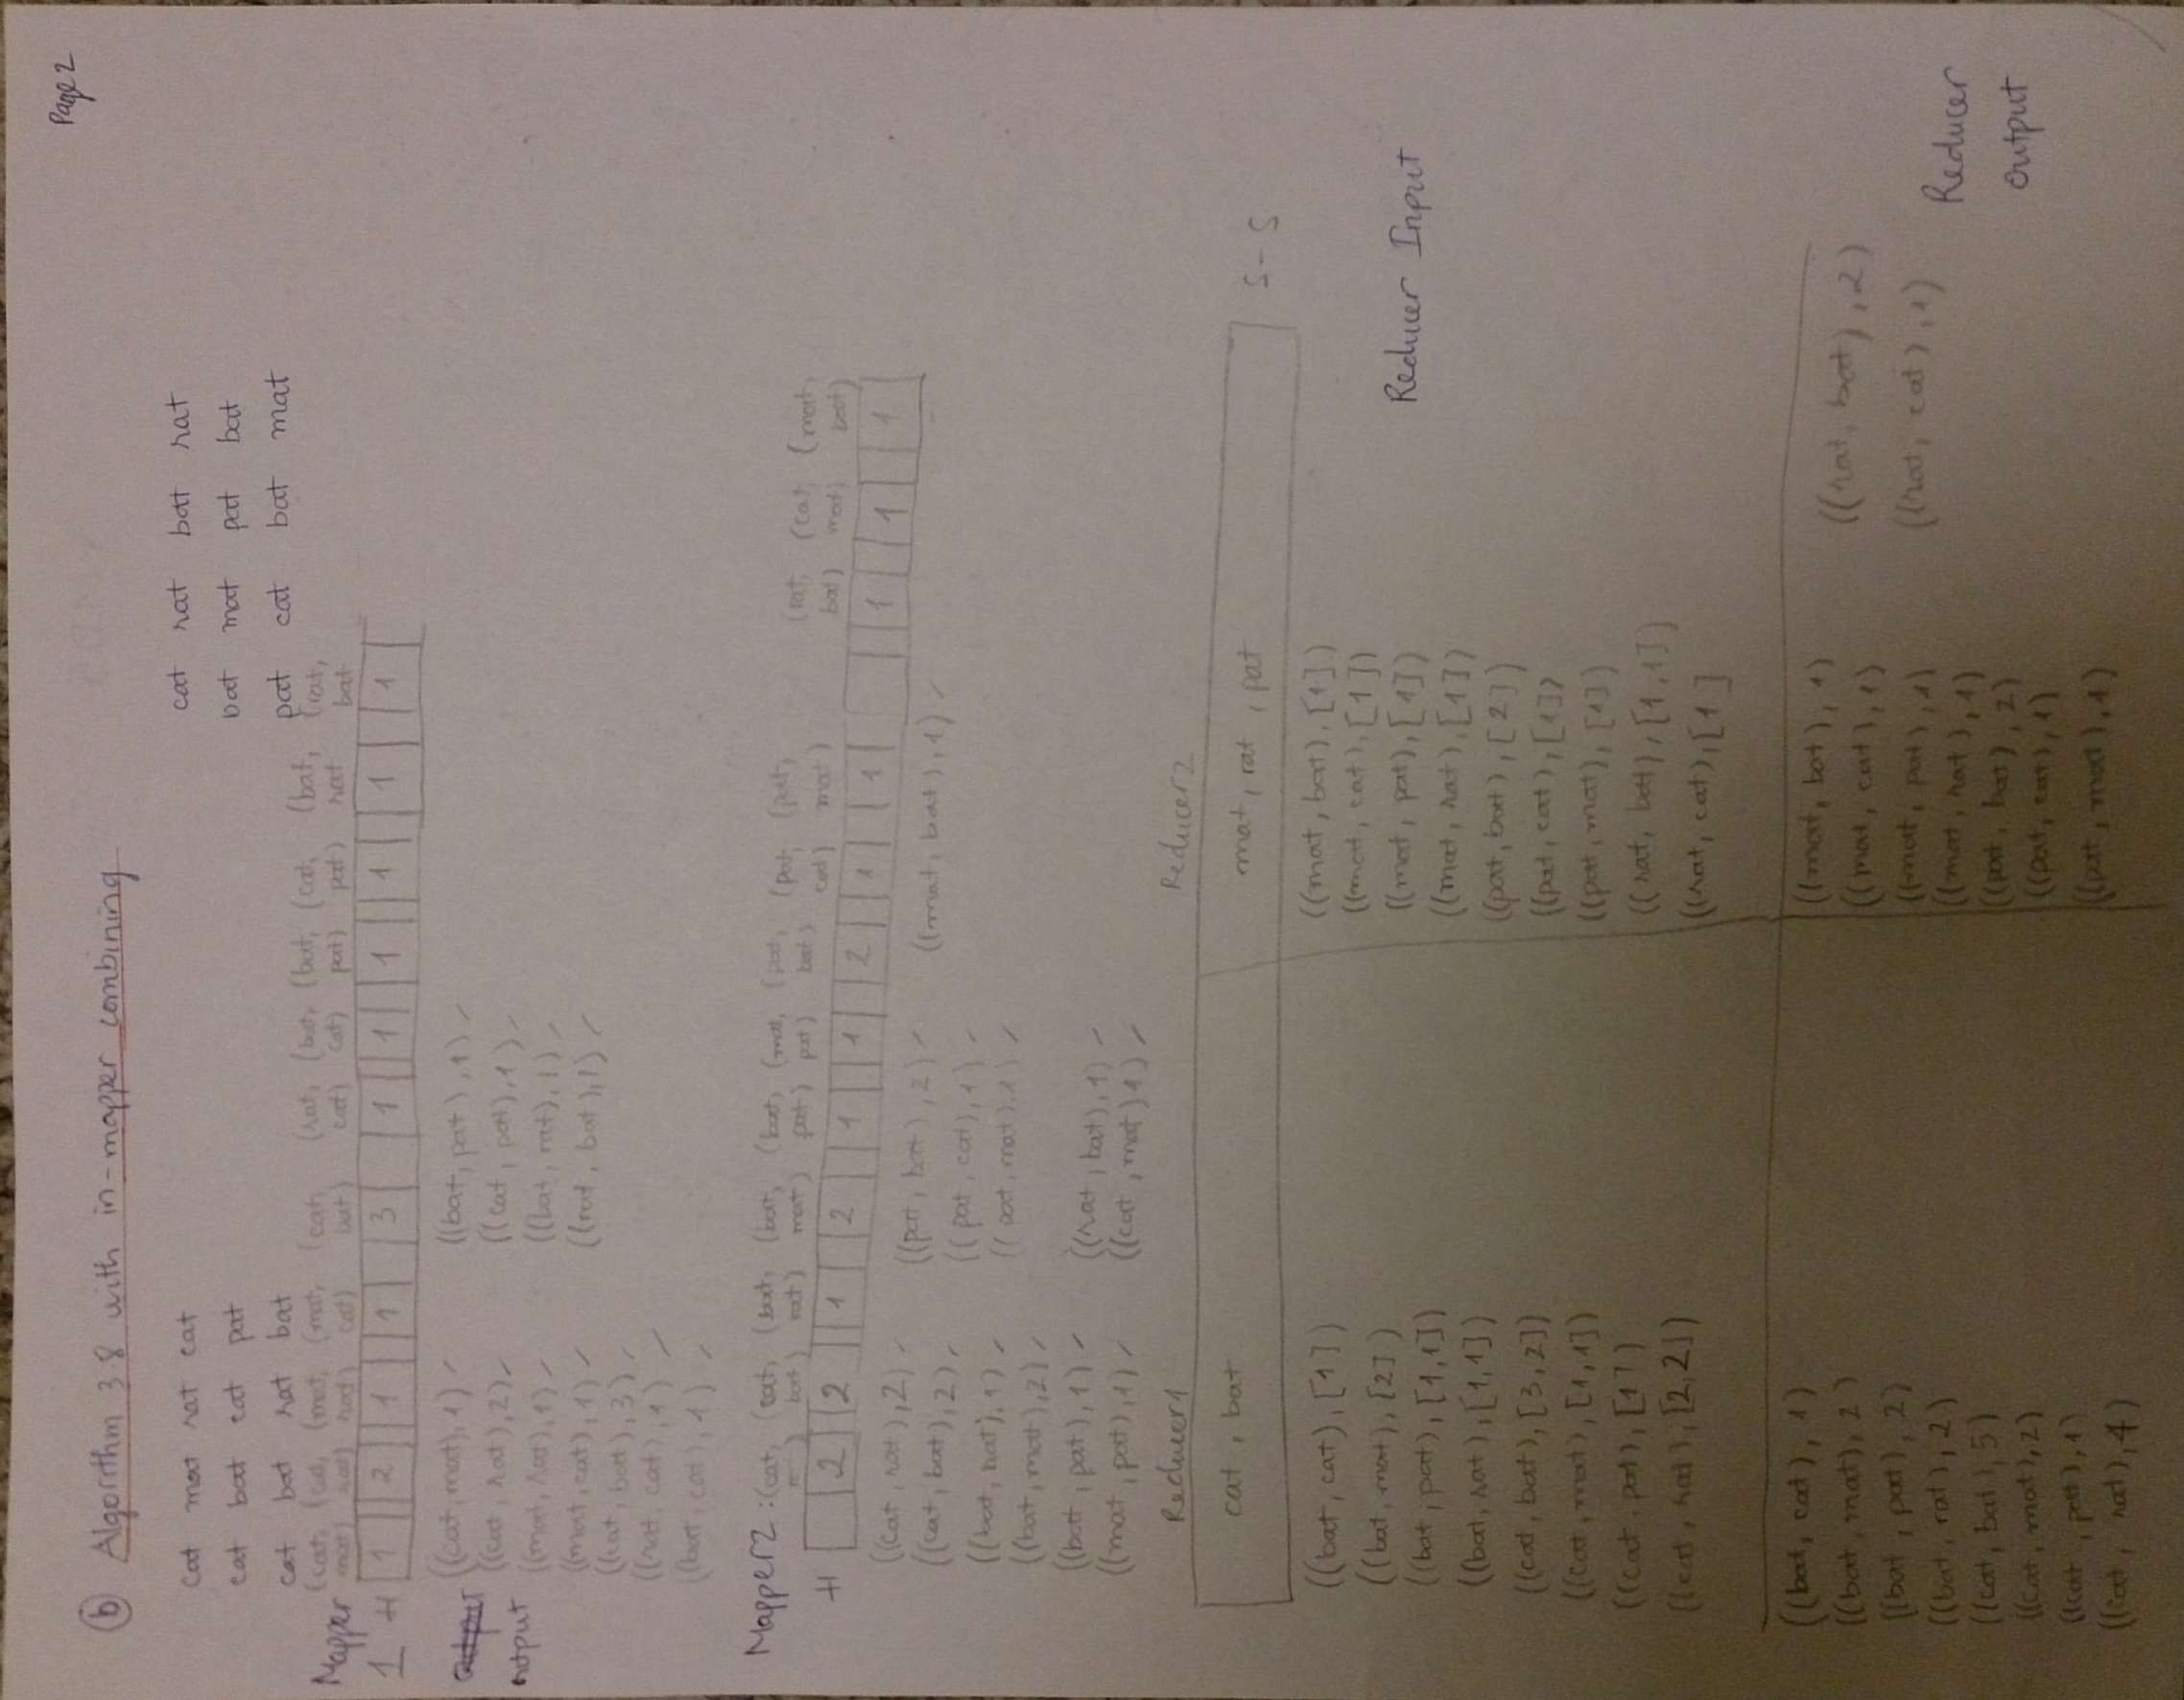 Page 2
(b) Algorithm 3.8 with in-mapper combining
cat mat rat cat
cat bat cat pat
cat bat rat bat
cat rat bat rat
bat mat pat bat
pat cat bat mat
Mapper 1
(cat, mat) (cat, rat) (mat, rat) (mat, cat) (cat, bat) (rat, cat) (bat, cat) (bat, pat) (cat, pat) (bat, rat (rat, bat
H 1 2 1 1 3 1 1 1 1 1 1
output
((cat, mat), 1)
((cat, rat), 2)
((mat, rat), 1)
((mat, cat), 1)
((cat, bat), 3)
((rat, cat), 1)
((bat, cat), 1)
((bat, pat), 1)
((cat, pat), 1)
((bat, rat), 1)
((rat, bat), 1)
Mapper 2 : (cat, (cat, bat) (bat, rat) (bat, mat) (bat, pat) (mat, pat) (pat, bat) (pat, cat) (pat, mat) (rat, bat) (cat, mat) (mat, bat)
H 2 2 1 2 1 1 2 1 1 1 1 1
((cat, rat), 2)
((cat, bat), 2)
((bat, rat), 1)
((bat, mat), 2)
((bat, pat), 1)
((mat, pat), 1)
((pat, bat), 2)
((pat, cat), 1)
((pat, mat), 1)
((rat, bat), 1)
((cat, mat) 1)
((mat, bat), 1)
Reducer 1
Reducer 2
cat, bat
mat, rat, pat
S-S
((bat, cat), [1])
((bat, mat), [2])
((bat, pat), [1,1])
((bat, rat), [1,1])
((cat, bat), [3,2])
((cat, mat), [1,1])
((cat, pat), [1])
((cat, rat), [2,2])
((mat, bat), [1])
((mat, cat), [1])
((mat, pat), [1])
((mat, rat), [1])
((pat, bat), [2])
((pat, cat), [1])
((pat, mat), [1])
((rat, bat), [1,1])
((rat, cat), [1]
Reducer Input
((bat, cat), 1)
((bat, mat), 2)
((bat, pat), 2)
((bat, rat), 2)
((cat, bat), 5)
((cat, mat), 2)
((cat, pat), 1)
((cat, rat), 4)
((mat, bat), 1)
((mat, cat), 1)
((mat, pat), 1)
((mat, rat), 1)
((pat, bat), 2)
((pat, cat), 1)
((pat, mat), 1)
((rat, bat), 2)
((rat, cat), 1)
Reducer
output